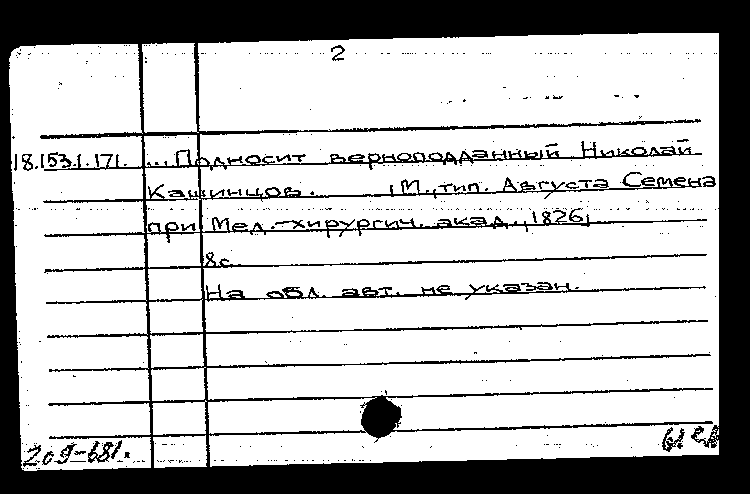 2
18.153.1.171. ...Подносит верноподданный Николай
Кашинцов. [М., тип. Августа Семена
при Мед.-хирургич. акад., 1826]
8с.
На обл. авт. не указан.
209-681.